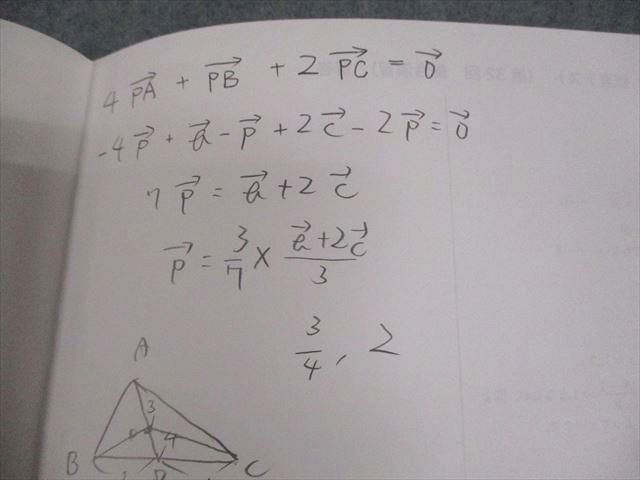 4PA⃗ + PB⃗ + 2PC⃗ = 0⃗
-4p⃗ + b⃗ - p⃗ + 2c⃗ - 2p⃗ = 0⃗
7p⃗ = b⃗ + 2c⃗
p⃗ = 3/7 × (b⃗ + 2c⃗)/3
3/4, 2
A
3
4
B
C